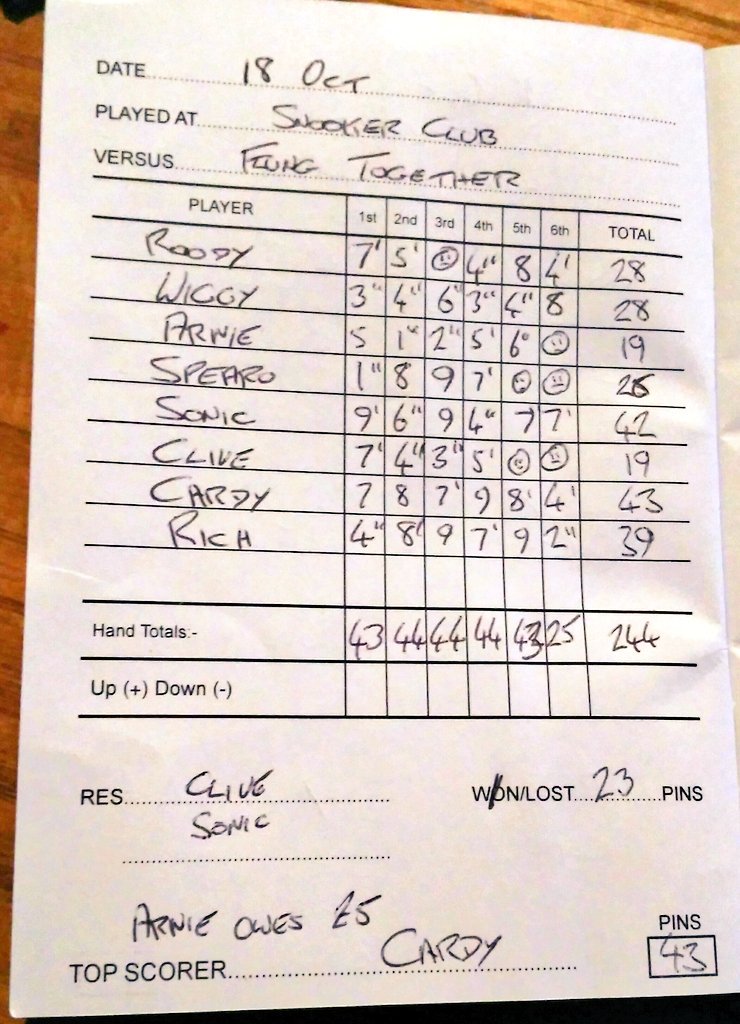 DATE 18 OCT
PLAYED AT SNOOKER CLUB
VERSUS FLUNG TOGETHER
PLAYER 1st 2nd 3rd 4th 5th 6th TOTAL
ROODY 7' 5' 4" 8 4' 28
WIGGY 3" 4" 6" 3" 4" 8 28
ARNIE 5 1" 2" 5' 6° 19
SPEARO 1" 8 9 7' 25
SONIC 9' 6" 9 4" 7 7' 42
CLIVE 7' 4" 3" 5' 19
CARDY 7 8 7' 9 8' 4' 43
RICH 4" 8' 9 7' 9 2" 39
Hand Totals:- 43 44 44 44 43 25 244
Up (+) Down (-)
RES CLIVE WON/LOST 23 PINS
SONIC
ARNIE OWES £5
PINS
TOP SCORER CARDY 43